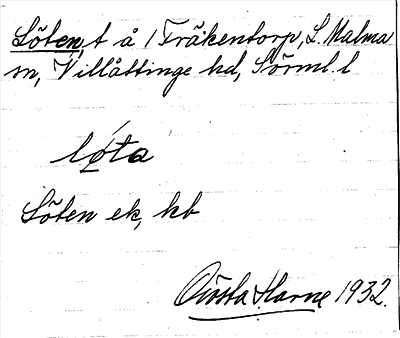 Löten, t å / Träkentorp, L. Malma
sn, Villåttinge hd, Sörml. l
lǿta
Löten ek, kb
Gösta Harne 1932.